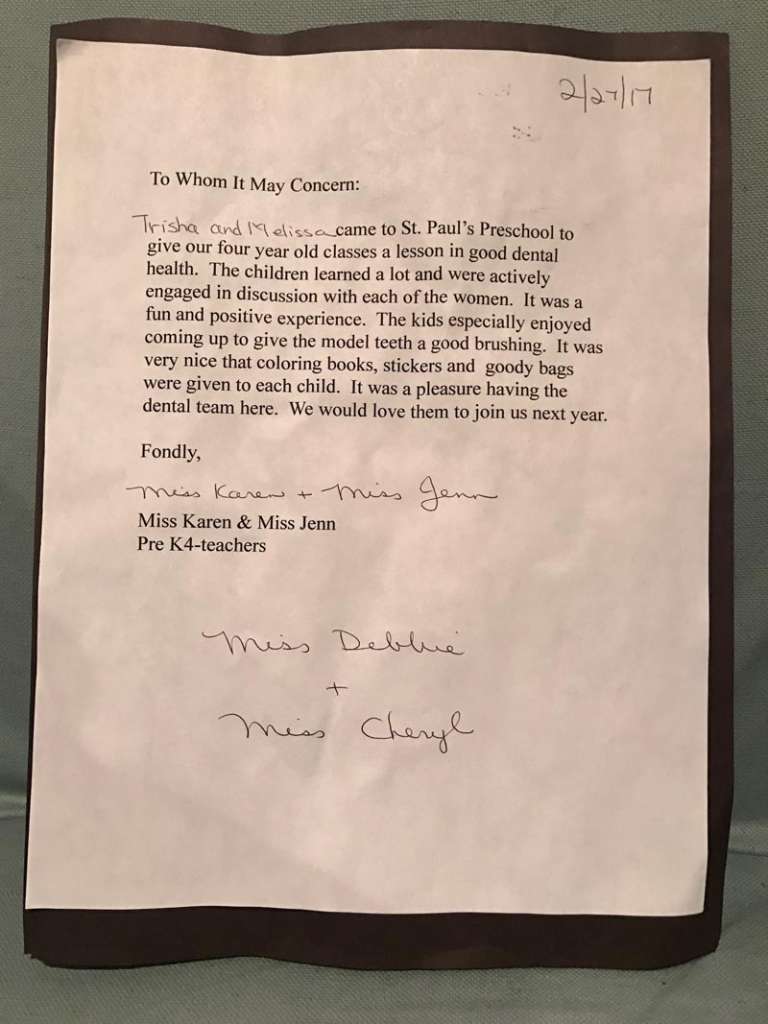 2/27/17
To Whom It May Concern:
Trisha and Melissa came to St. Paul's Preschool to
give our four year old classes a lesson in good dental
health. The children learned a lot and were actively
engaged in discussion with each of the women. It was a
fun and positive experience. The kids especially enjoyed
coming up to give the model teeth a good brushing. It was
very nice that coloring books, stickers and goody bags
were given to each child. It was a pleasure having the
dental team here. We would love them to join us next year.
Fondly,
Miss Karen + Miss Jenn
Miss Karen & Miss Jenn
Pre K4-teachers
Miss Debbie
+
Miss Cheryl